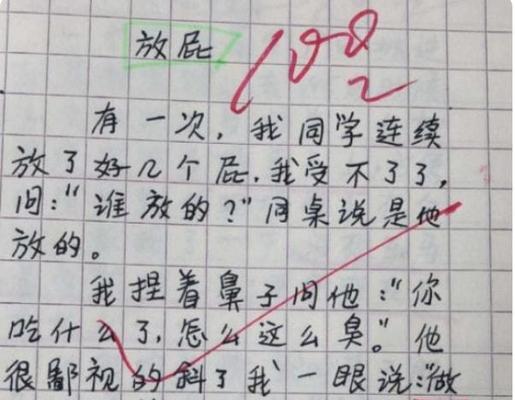 放屁
100
2
有一次，我同学连续
放了好几个屁，我受不了了，
问："谁放的？"同桌说是他
放的。
我捏着鼻子问他："你
吃什么了，怎么这么臭。"他
很鄙视的斜了我一眼说："做